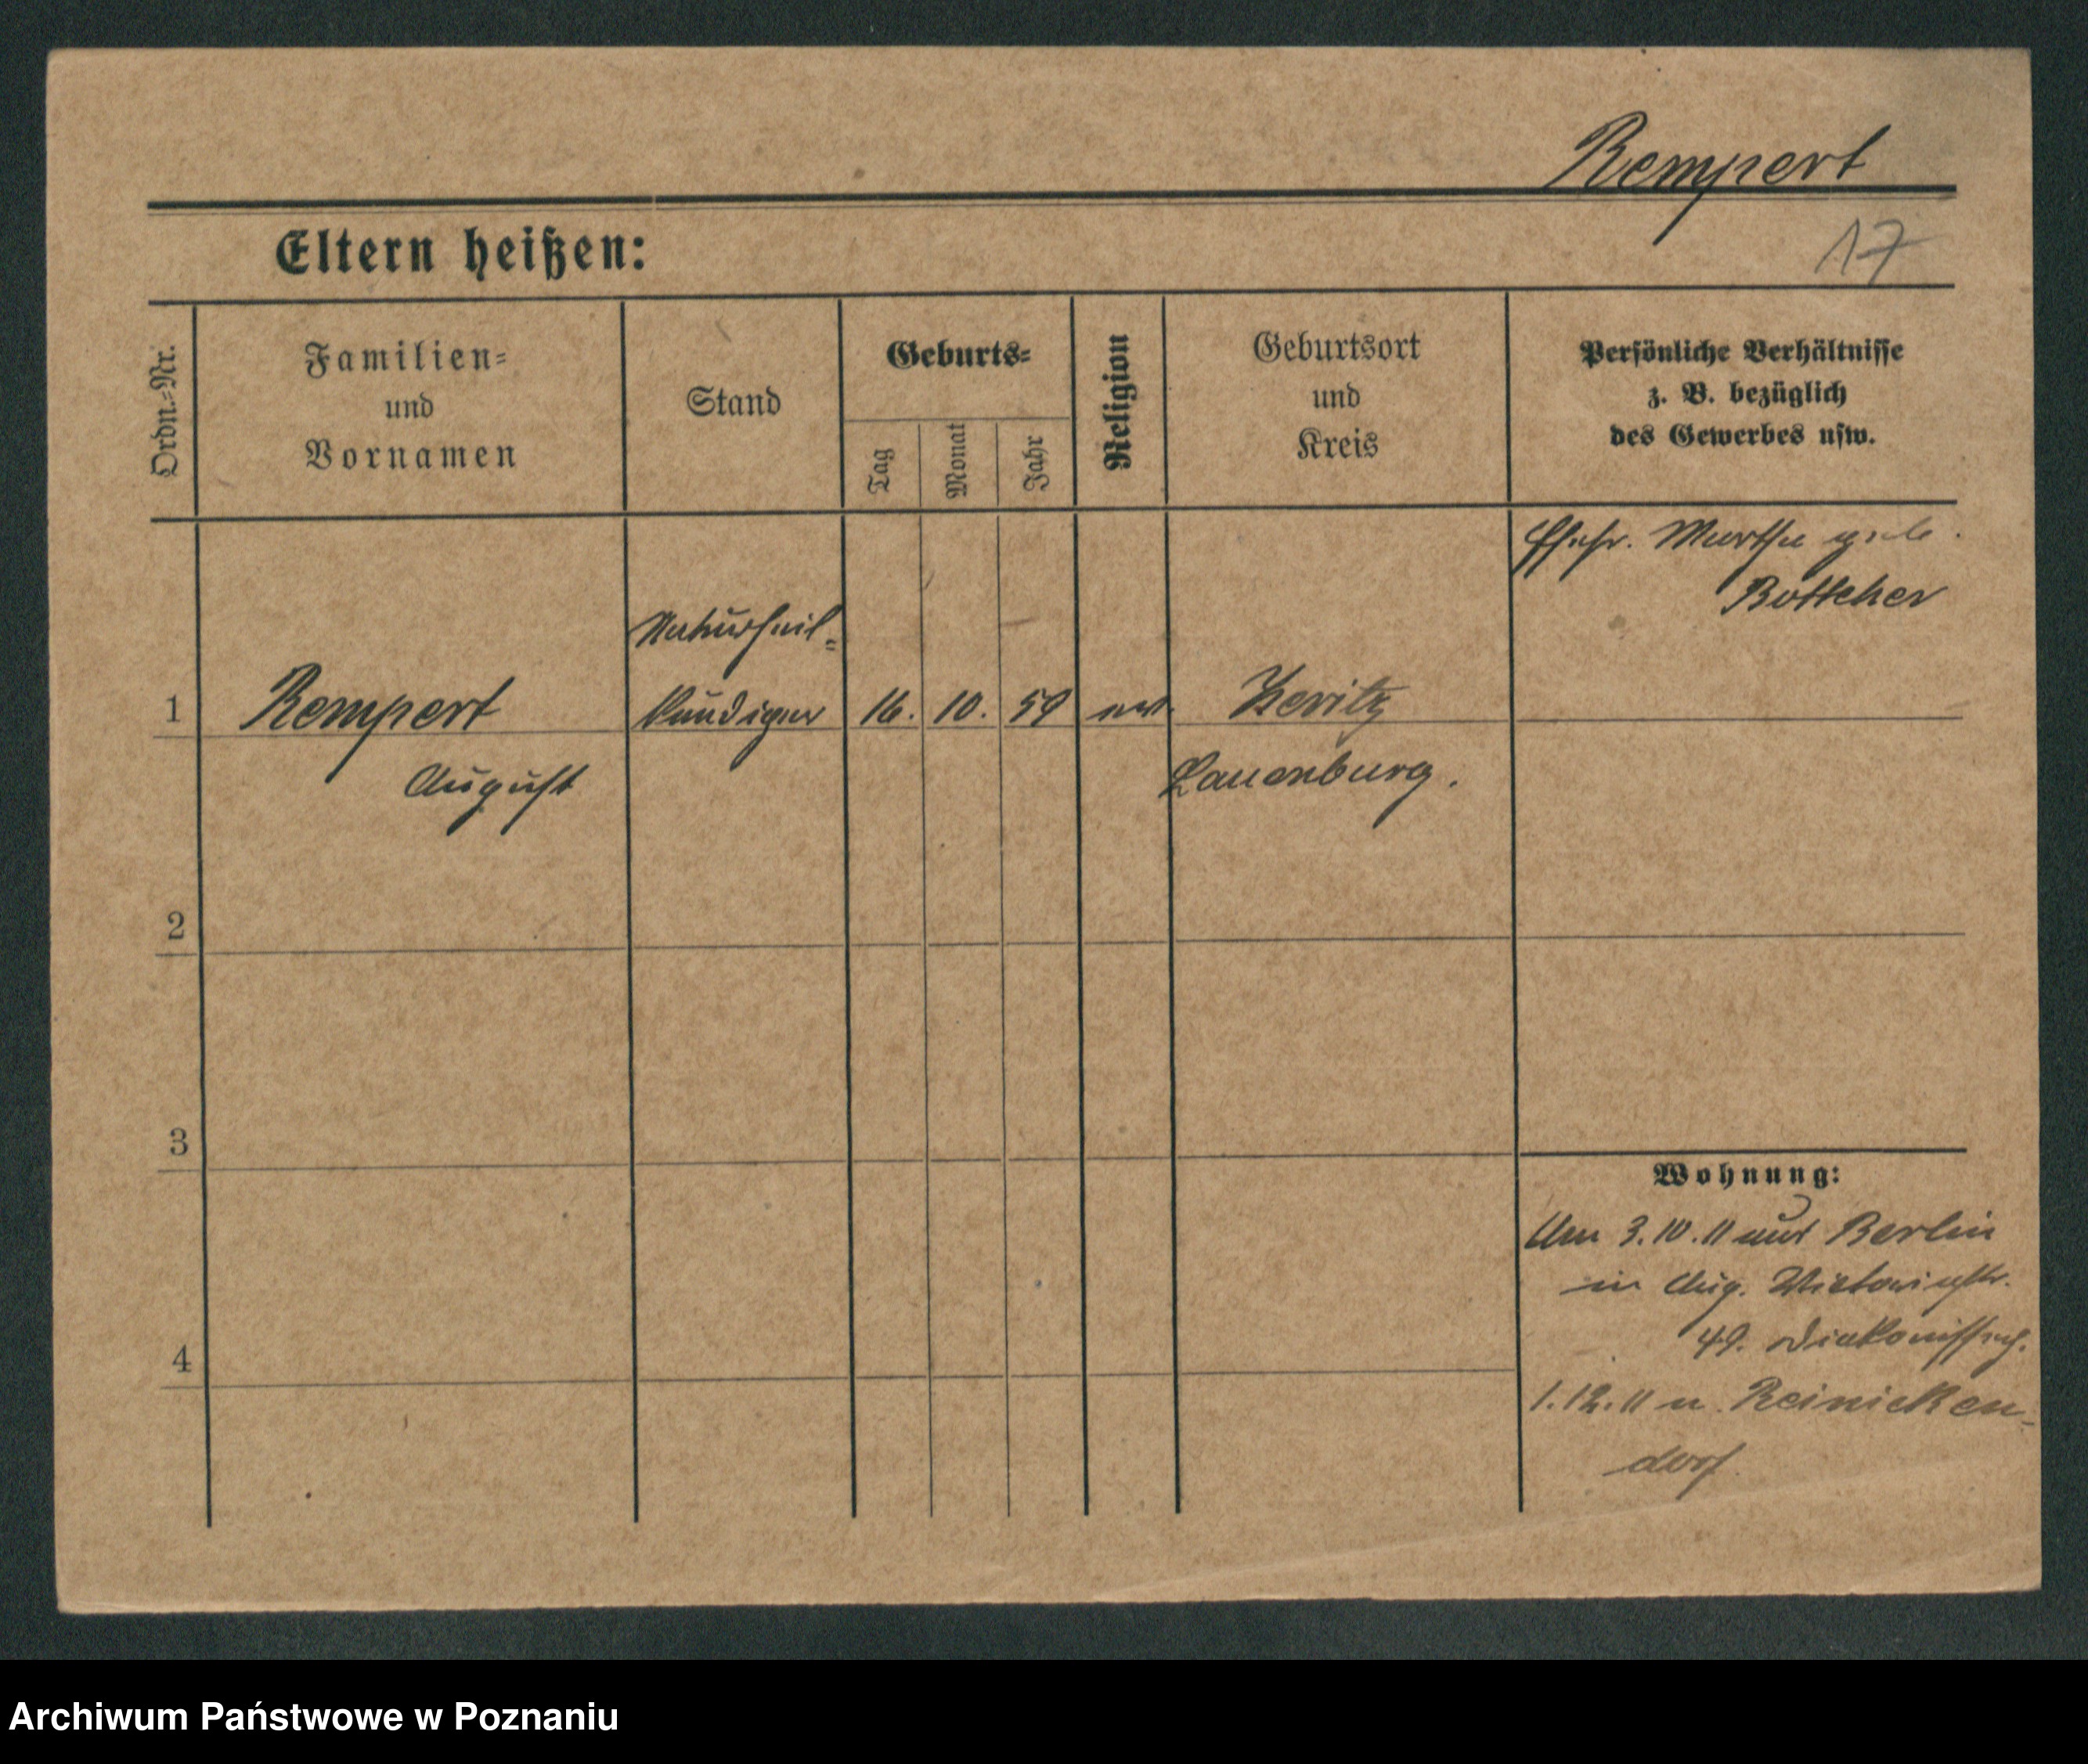 Rempert
17
Eltern heißen:
Ordn.-Nr.
Familien-
und
Vornamen
Stand
Geburts-
Tag
Monat
Jahr
Religion
Geburtsort
und
Kreis
Persönliche Verhältnisse
z. B. bezüglich
des Gewerbes usw.
Ehefr. Martha geb.
Bottcher
Naturheil-
1 Rempert kundiger 16. 10. 59 ev. Zeritz
August Lauenburg.
2
3
Wohnung:
Am 3.10.11 aus Berlin
in Aug. Victoriastr.
49. Diakonissenh.
4
1.12.11 n. Reinicken-
dorf
Archiwum Państwowe w Poznaniu